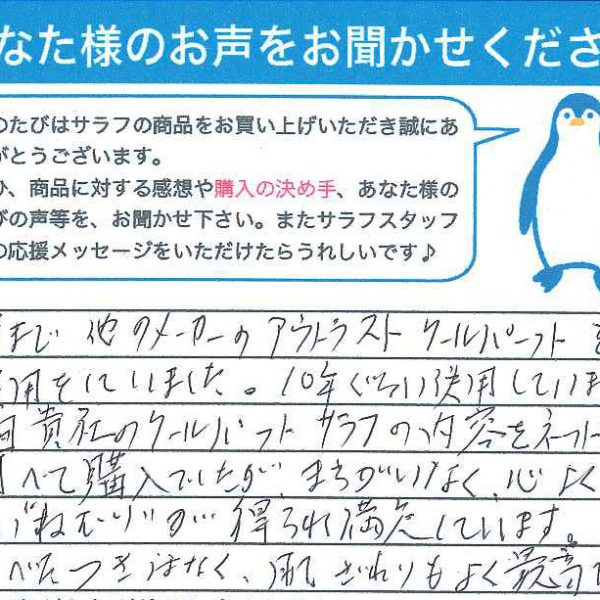 なた様のお声をお聞かせくださ
のたびはサラフの商品をお買い上げいただき誠にあ
がとうございます。
ひ、商品に対する感想や購入の決め手、あなた様の
びの声等を、お聞かせ下さい。またサラフスタッフ
の応援メッセージをいただけたらうれしいです♪
まで他のメーカーのアウトラストクールパーフト
用をしていました。10年ぐらい使用していま
貴社のクールパフト サラフの内容をネット
べて購入でしたが、まちがいなく、心よく
ねむりが得られ満足しています。
べたつきはなく、肌ざわりもよく最高